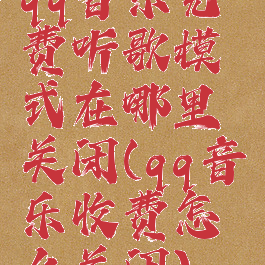 qq音乐免
费听歌模
式在哪里
关闭(qq音
乐收费怎
么关闭)